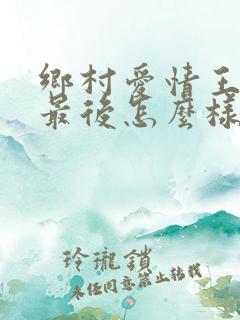 鄉村愛情王
最後怎麼樣
玲瓏鎖
未经同意禁止转载